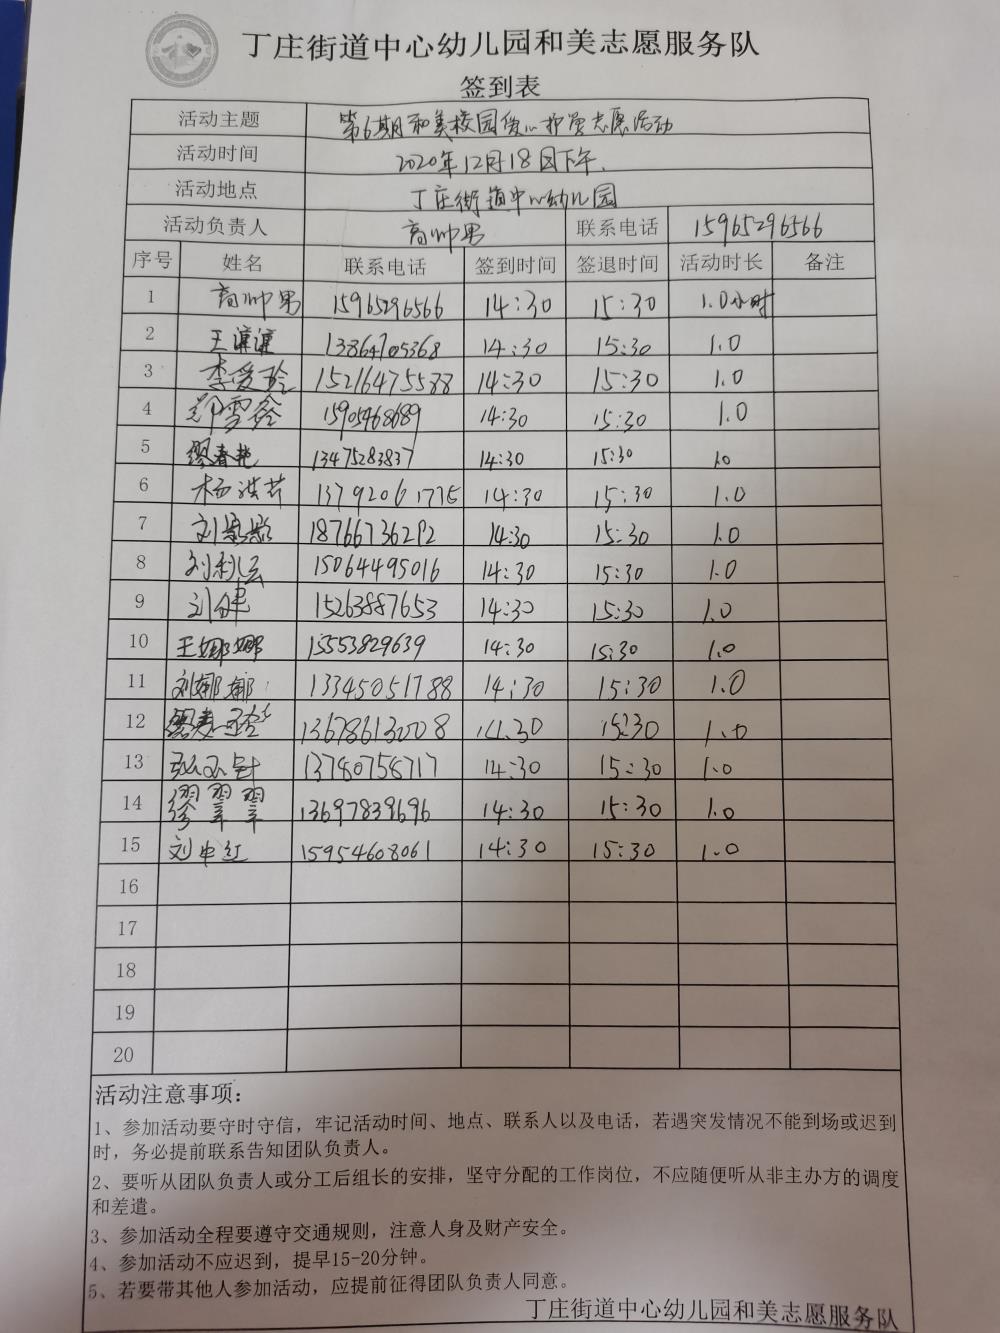 丁庄街道中心幼儿园和美志愿服务队
签到表
活动主题 第6期和美校园爱心护学志愿活动
活动时间 2020年12月18日下午.
活动地点 丁庄街道中心幼儿园
活动负责人 高帅男 联系电话 15965296566
序号 姓名 联系电话 签到时间 签退时间 活动时长 备注
1 高帅男 15965296566 14:30 15:30 1.0小时
2 王 13864705368 14:30 15:30 1.0
3 李爱玲 15216475588 14:30 15:30 1.0
4 郑雪鑫 15905468689 14:30 15:30 1.0
5 缪春艳 13475283837 14:30 15:30 1.0
6 杨洪芹 13792061775 14:30 15:30 1.0
7 刘 18766736292 14:30 15:30 1.0
8 刘利云 15064495016 14:30 15:30 1.0
9 刘健 15263887653 14:30 15:30 1.0
10 王娜娜 15553829639 14:30 15:30 1.0
11 刘娜娜 13345051788 14:30 15:30 1.0
12 13678613008 14:30 15:30 1.0
13 13780758717 14:30 15:30 1.0
14 缪翠翠 13697839696 14:30 15:30 1.0
15 刘中红 15954608061 14:30 15:30 1.0
16
17
18
19
20
活动注意事项：
1、参加活动要守时守信，牢记活动时间、地点、联系人以及电话，若遇突发情况不能到场或迟到
时，务必提前联系告知团队负责人。
2、要听从团队负责人或分工后组长的安排，坚守分配的工作岗位，不应随便听从非主办方的调度
和差遣。
3、参加活动全程要遵守交通规则，注意人身及财产安全。
4、参加活动不应迟到，提早15-20分钟。
5、若要带其他人参加活动，应提前征得团队负责人同意。
丁庄街道中心幼儿园和美志愿服务队